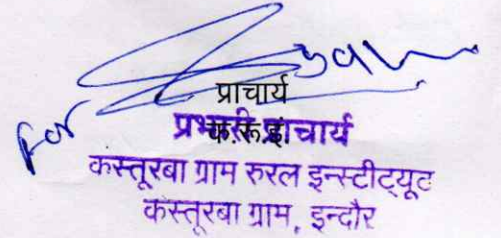 for
प्राचार्य
प्रभारी प्राचार्य
क.रू.इं.
कस्तूरबा ग्राम रुरल इन्स्टीट्यूट
कस्तूरबा ग्राम, इन्दौर